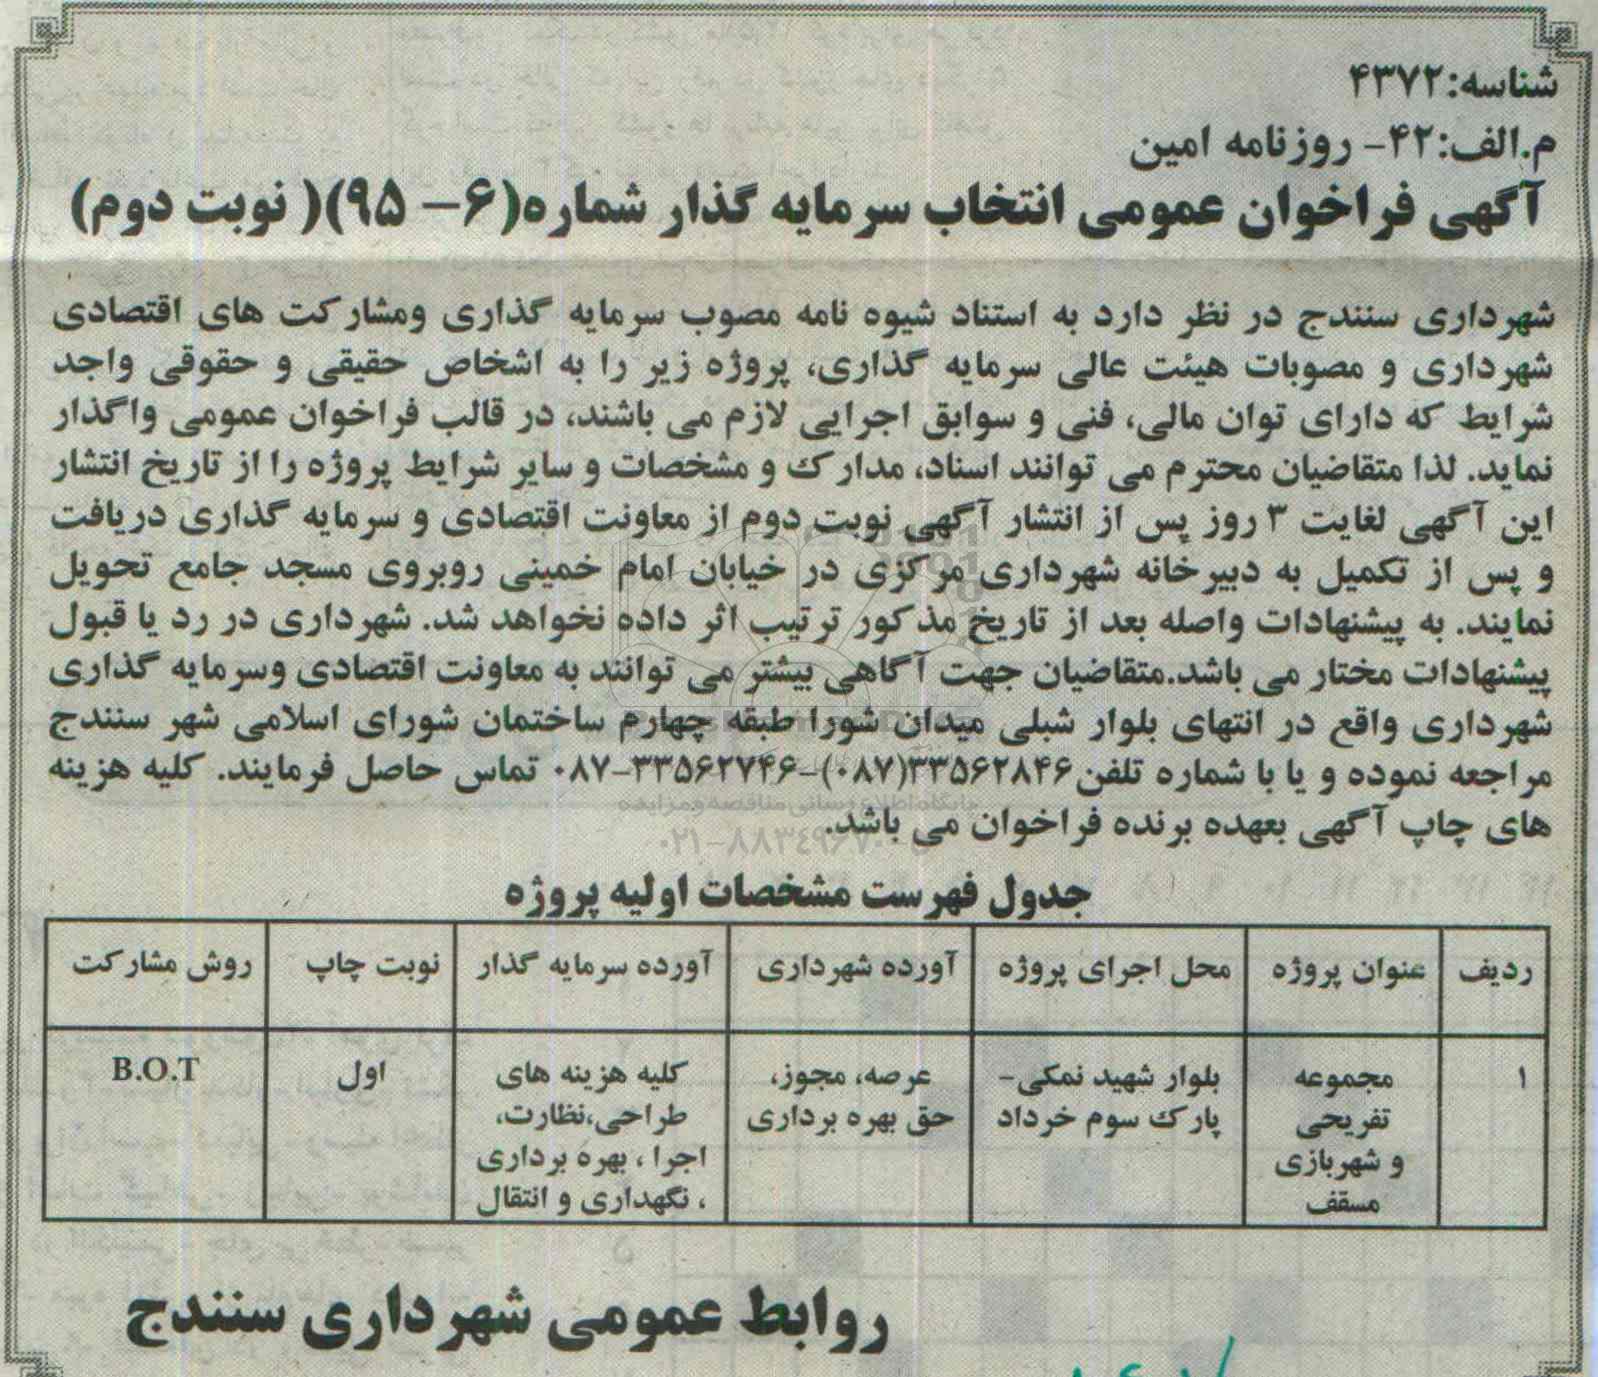 شناسه:۴۳۷۲
م.الف:۴۲- روزنامه امین
آگهی فراخوان عمومی انتخاب سرمایه گذار شماره(۶- ۹۵)( نوبت دوم)
شهرداری سنندج در نظر دارد به استناد شیوه نامه مصوب سرمایه گذاری ومشارکت های اقتصادی
شهرداری و مصوبات هیئت عالی سرمایه گذاری، پروژه زیر را به اشخاص حقیقی و حقوقی واجد
شرایط که دارای توان مالی، فنی و سوابق اجرایی لازم می باشند، در قالب فراخوان عمومی واگذار
نماید. لذا متقاضیان محترم می توانند اسناد، مدارک و مشخصات و سایر شرایط پروژه را از تاریخ انتشار
این آگهی لغایت ۳ روز پس از انتشار آگهی نوبت دوم از معاونت اقتصادی و سرمایه گذاری دریافت
و پس از تکمیل به دبیرخانه شهرداری مرکزی در خیابان امام خمینی روبروی مسجد جامع تحویل
نمایند. به پیشنهادات واصله بعد از تاریخ مذکور ترتیب اثر داده نخواهد شد. شهرداری در رد یا قبول
پیشنهادات مختار می باشد.متقاضیان جهت آگاهی بیشتر می توانند به معاونت اقتصادی وسرمایه گذاری
شهرداری واقع در انتهای بلوار شبلی میدان شورا طبقه چهارم ساختمان شورای اسلامی شهر سنندج
مراجعه نموده و یا با شماره تلفن ۳۳۵۶۲۸۴۶(۰۸۷)-۳۳۵۶۲۷۴۶-۰۸۷ تماس حاصل فرمایند. کلیه هزینه
های چاپ آگهی بعهده برنده فراخوان می باشد.
پایگاه اطلاع رسانی مناقصه و مزایده
۰۲۱-۸۸۳۴۹۶۷۰-۵
جدول فهرست مشخصات اولیه پروژه
ردیف عنوان پروژه محل اجرای پروژه آورده شهرداری آورده سرمایه گذار نوبت چاپ روش مشارکت
۱ مجموعه بلوار شهید نمکی- عرصه، مجوز، کلیه هزینه های اول B.O.T
تفریحی پارک سوم خرداد حق بهره برداری طراحی،نظارت،
و شهربازی اجرا ، بهره برداری
مسقف ، نگهداری و انتقال
روابط عمومی شهرداری سنندج